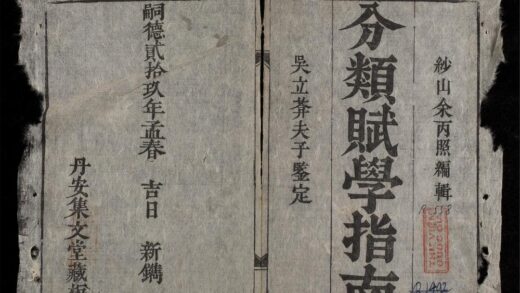 紗山余丙照編輯
分類賦學指南
吳立莽夫子鑒定
嗣德貳拾玖年孟春 吉日 新鐫
丹安集文堂藏板